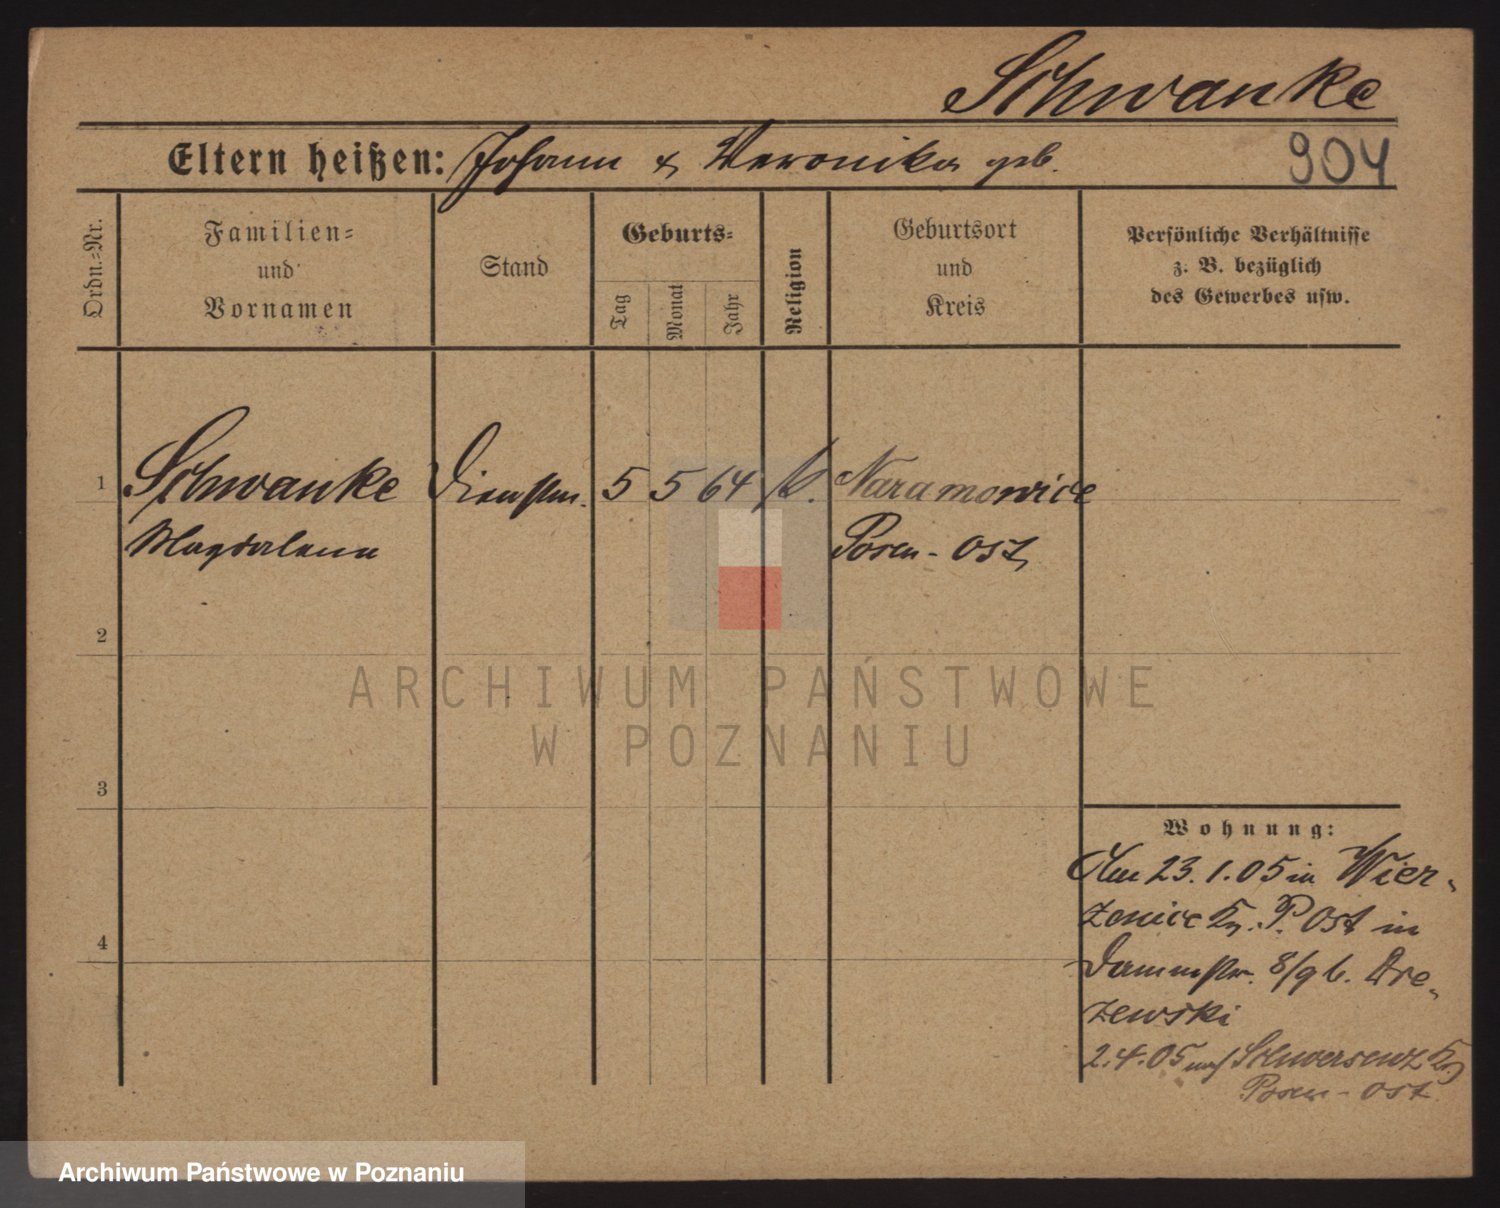 Schwanke
Eltern heißen: Johann & Veronika geb.
904
Ordn.-Nr.
Familien-
und
Vornamen
Stand
Geburts-
Tag
Monat
Jahr
Religion
Geburtsort
und
Kreis
Persönliche Verhältnisse
z. B. bezüglich
des Gewerbes usw.
1 Schwanke Dienstm. 5 5 64 k. Naramowice
Magdalena Posen-Ost
2
3
4
Wohnung:
Am 23.1.05 in Wier-
zenice Kr. P. Ost in
Dammstr. 8/9 b. Dre-
zewski
2.4.05 nach Schwersenz Kr.
Posen-Ost.
ARCHIWUM PAŃSTWOWE
W POZNANIU
Archiwum Państwowe w Poznaniu